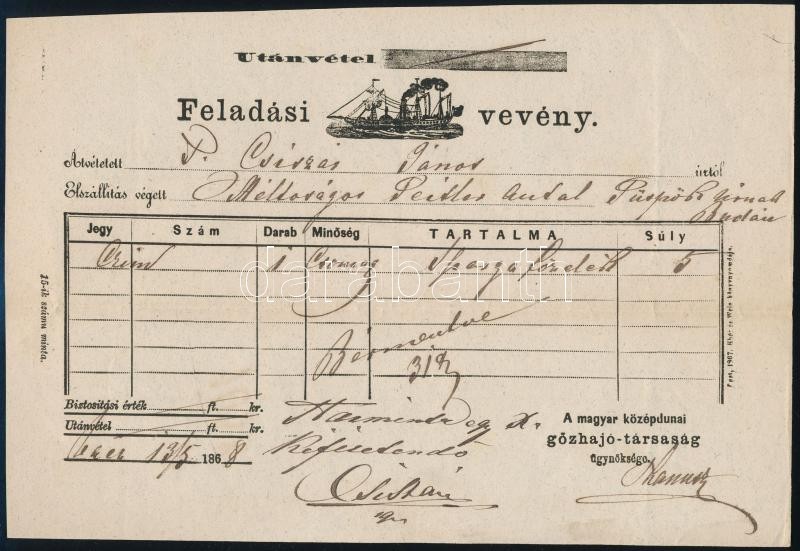 Utánvétel
Feladási vevény.
Átvétetett P. Csiszár János úrtól
Elszállítás végett Méltóságos Peitler Antal Püspök Úrnak
Budán
Jegy Szám Darab Minőség TARTALMA Súly
Czim 1 Csomag Sparga főzelék 5
darabanth
Bérmentve
31 x
Biztosítási érték ft. kr.
Utánvétel ft. kr.
13/5 1868
Harmintz egy x.
kifizetendő
A magyar középdunai
gőzhajó-társaság
ügynöksége.
15-ik számu minta.
Pest, 1867. Khór és Wein könyvnyomdája.